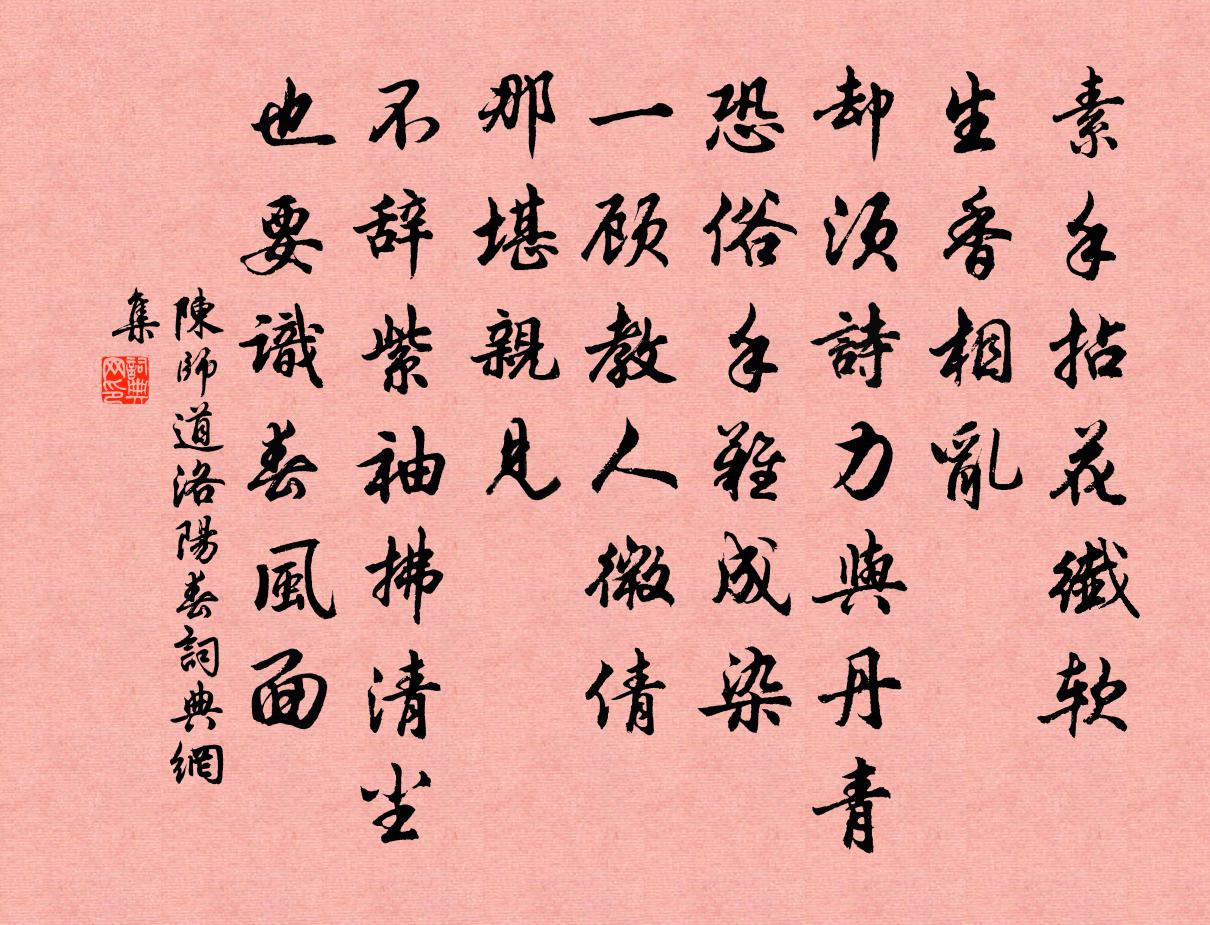 素手拈花纖软
生香相亂
却须詩力與丹青
恐俗手難成染
一顾教人微倩
那堪親見
不辞紫袖拂清尘
也要識春風面
陳師道洛陽春詞典網
集
詞典
网印